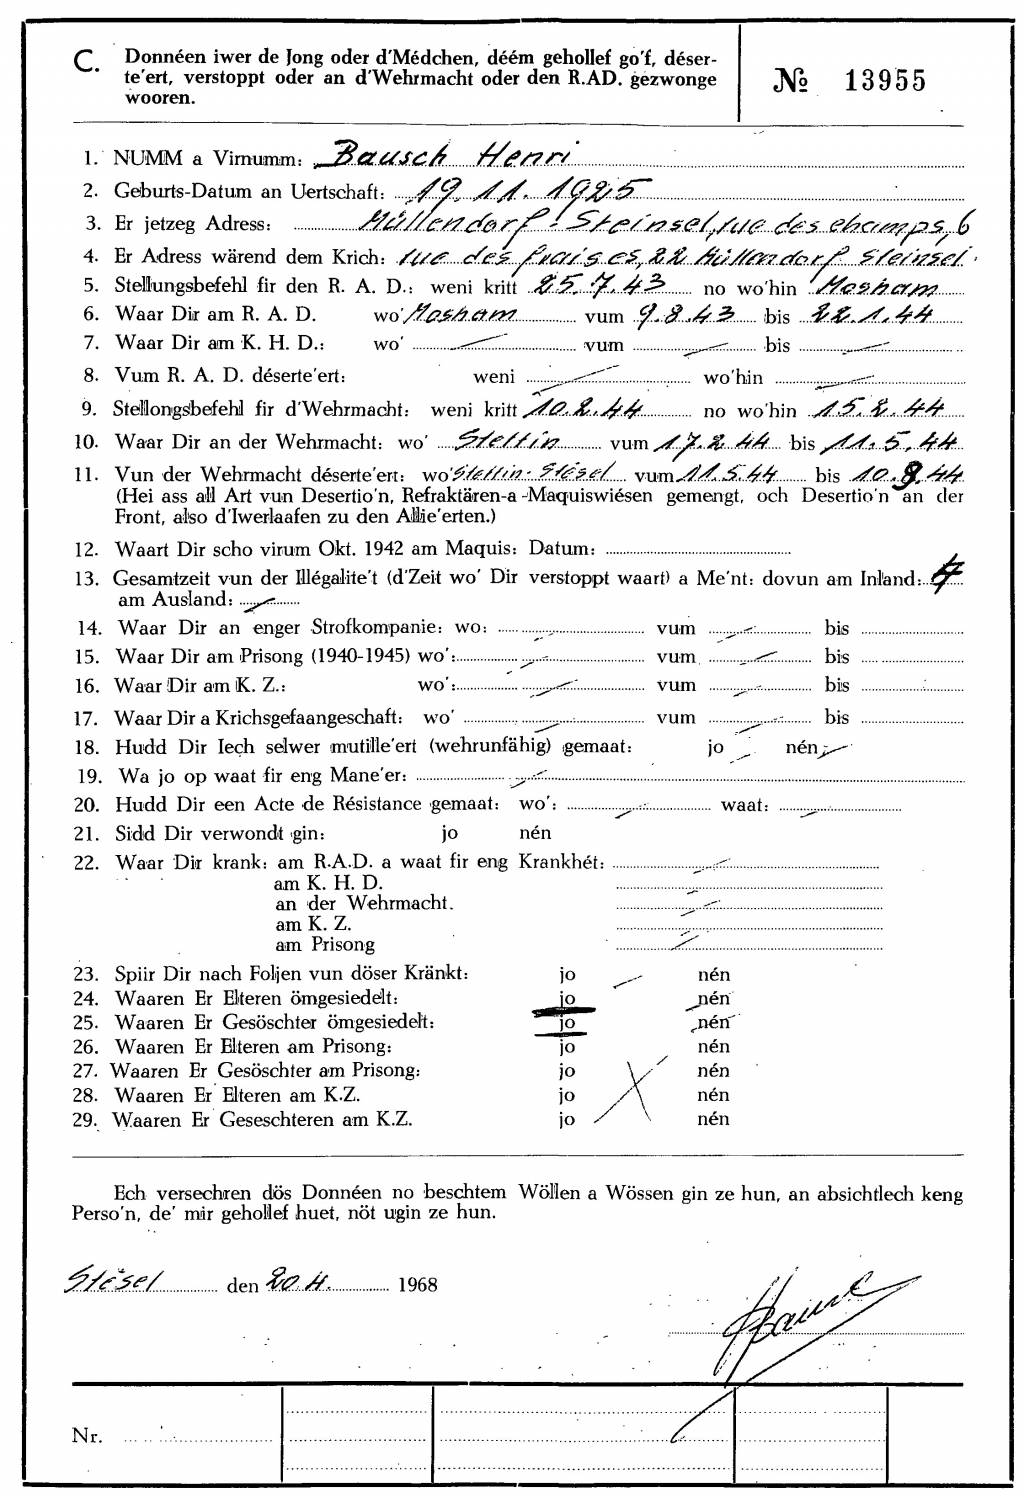 C. Donnéen iwer de Jong oder d'Médchen, déém gehollef go'f, déser-
te'ert, verstoppt oder an d'Wehrmacht oder den R.AD. gezwonge
wooren.
№ 13955
1. NUMM a Virnumm: Bausch Henri
2. Geburts-Datum an Uertschaft: 19. 11. 1925
3. Er jetzeg Adress: Müllendorf - Steinsel, rue des champs, 6
4. Er Adress wärend dem Krich: rue des fraises, 22 Müllendorf Steinsel.
5. Stellungsbefehl fir den R. A. D.: weni kritt 25. 7. 43 no wo'hin Mosham
6. Waar Dir am R. A. D. wo' Mosham vum 9. 8. 43 bis 22. 1. 44
7. Waar Dir am K. H. D.: wo' vum bis
8. Vum R. A. D. déserte'ert: weni wo'hin
9. Stellongsbefehl fir d'Wehrmacht: weni kritt 10. 2. 44 no wo'hin 15. 2. 44
10. Waar Dir an der Wehrmacht: wo' Stettin vum 17. 2. 44 bis 11. 5. 44
11. Vun der Wehrmacht déserte'ert: wo' Stettin - Stésel vum 11. 5. 44 bis 10. 9. 44
(Hei ass all Art vun Desertio'n, Refraktären-a -Maquiswiésen gemengt, och Desertio'n an der
Front, also d'Iwerlaafen zu den Allie'erten.)
12. Waart Dir scho virum Okt. 1942 am Maquis: Datum:
13. Gesamtzeit vun der Illégalite't (d'Zeit wo' Dir verstoppt waart) a Me'nt: dovun am Inland:
am Ausland:
14. Waar Dir an enger Strofkompanie: wo: vum bis
15. Waar Dir am Prisong (1940-1945) wo': vum bis
16. Waar Dir am K. Z.: wo': vum bis
17. Waar Dir a Krichsgefaangeschaft: wo' vum bis
18. Hudd Dir Iech selwer mutille'ert (wehrunfähig) gemaat: jo nén
19. Wa jo op waat fir eng Mane'er:
20. Hudd Dir een Acte de Résistance gemaat: wo': waat:
21. Sidd Dir verwondt gin: jo nén
22. Waar Dir krank: am R.A.D. a waat fir eng Krankhét:
am K. H. D.
an der Wehrmacht.
am K. Z.
am Prisong
23. Spiir Dir nach Foljen vun döser Kränkt: jo nén
24. Waaren Er Elteren ömgesiedelt: jo nén
25. Waaren Er Gesöschter ömgesiedelt: jo nén
26. Waaren Er Elteren am Prisong: jo nén
27. Waaren Er Gesöschter am Prisong: jo nén
28. Waaren Er Elteren am K.Z. jo nén
29. Waaren Er Geseschteren am K.Z. jo nén
Ech versechren dös Donnéen no beschtem Wöllen a Wössen gin ze hun, an absichtlech keng
Perso'n, de' mir gehollef huet, nöt ugin ze hun.
Stésel den 20. 4. 1968
Nr.